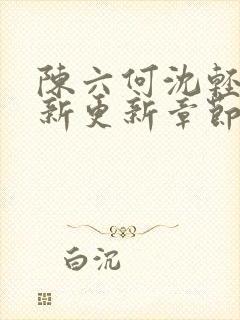 陳六何沈輕
新更新章節
白沉